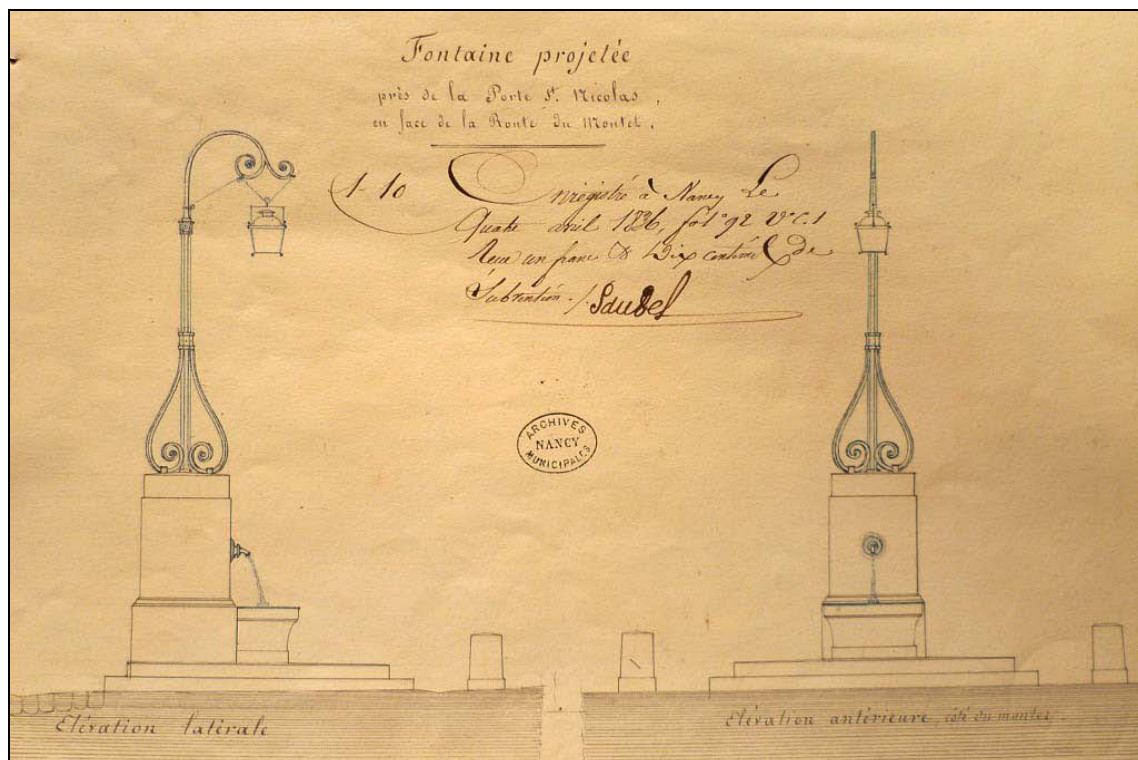 Fontaine projetée
près de la Porte St. Nicolas,
en face de la Route du Montet.
1-10 Enregistré à Nancy Le
Quatre avril 1836, fol° 92 V° C. 1
Reçu un franc & Dix centimes de
Subvention ./.
ARCHIVES
NANCY
MUNICIPALES
Elévation latérale
Elévation antérieure, côté du montet.